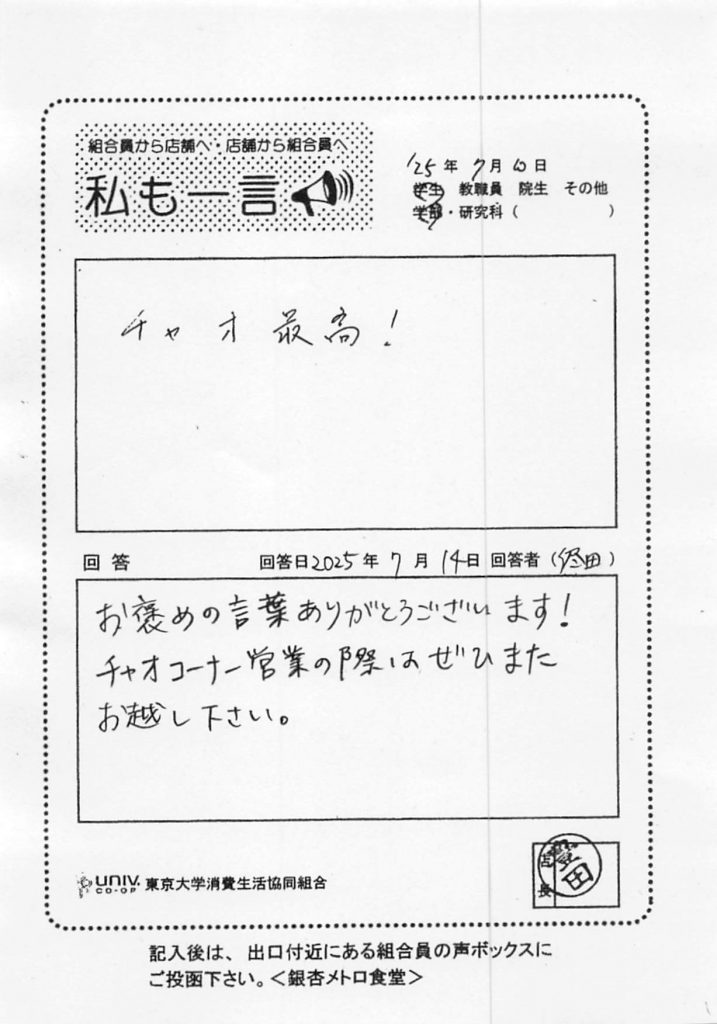 組合員から店舗へ・店舗から組合員へ
私も一言
'25年 7月10日
学生 教職員 院生 その他
学部・研究科( )
チャオ最高!
回答 回答日2025年7月14日 回答者( 田)
お褒めの言葉ありがとうございます!
チャオコーナー営業の際はぜひまた
お越し下さい。
UNIV. CO-OP 東京大学消費生活協同組合
店長
記入後は、出口付近にある組合員の声ボックスに
ご投函下さい。<銀杏メトロ食堂>